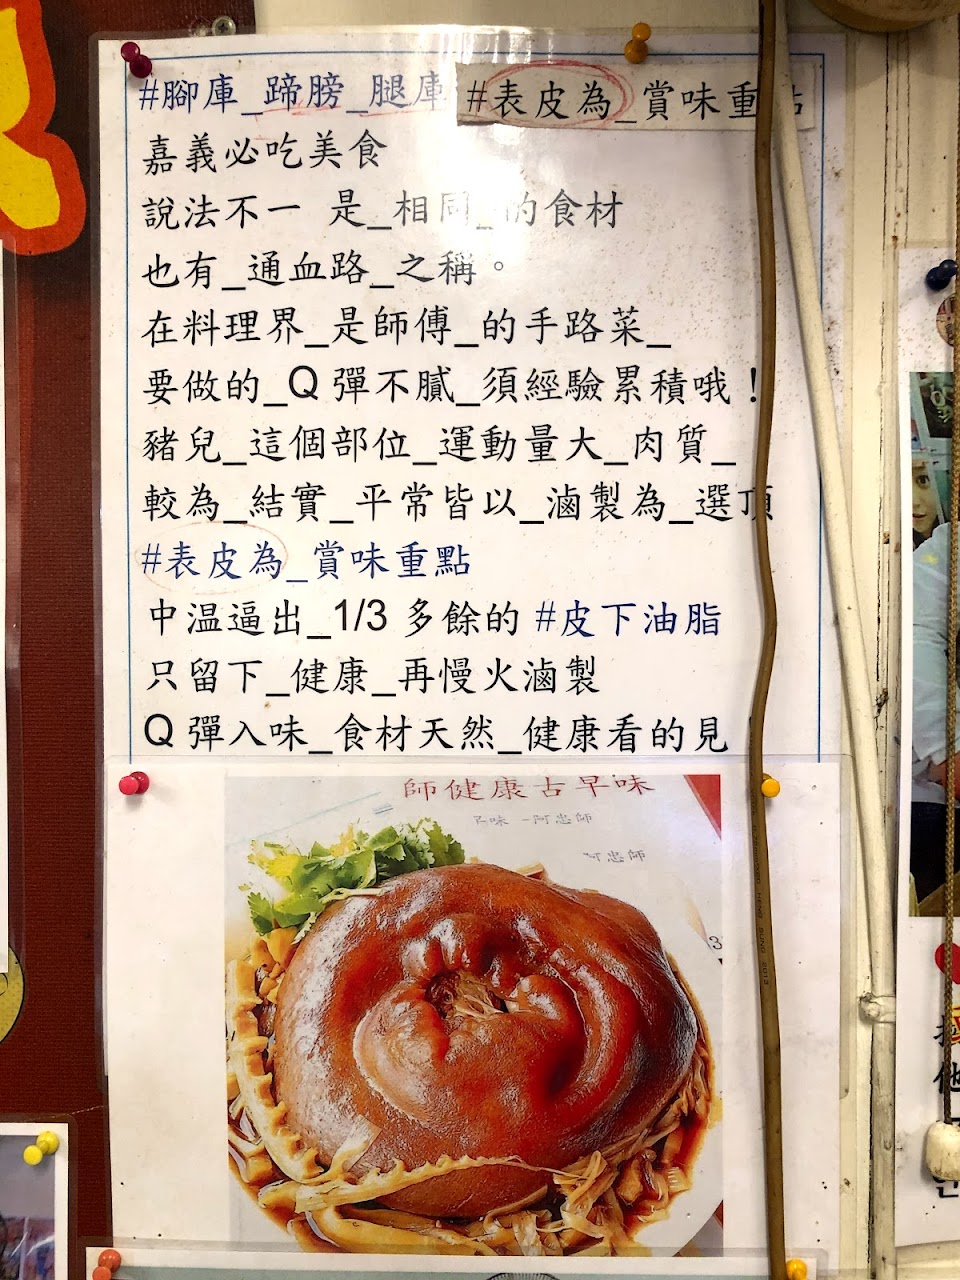 #腳庫_蹄膀_腿庫 #表皮為_賞味重點
嘉義必吃美食
說法不一 是_相同_的食材
也有_通血路_之稱。
在料理界_是師傅_的手路菜_
要做的_Q彈不膩_須經驗累積哦！
豬兒_這個部位_運動量大_肉質_
較為_結實_平常皆以_滷製為_選項
#表皮為_賞味重點
中温逼出_1/3 多餘的 #皮下油脂
只留下_健康_再慢火滷製
Q 彈入味_食材天然_健康看的見！
師健康古早味
味 -阿忠師
阿忠師
3
他